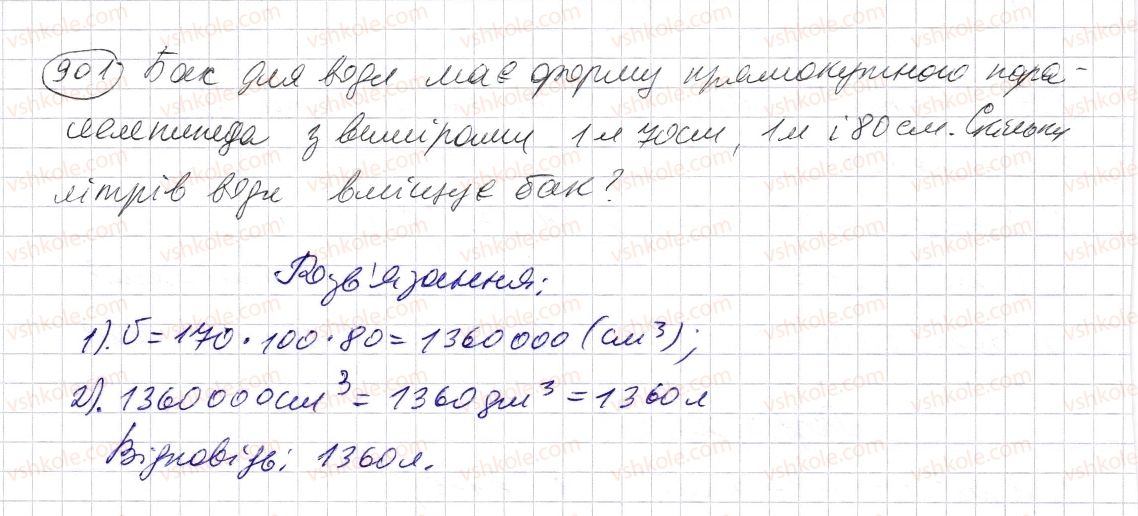 901) Бак для води має форму прямокутного пара-
лелепипеда з вимірами 1м 70см, 1м і 80см. Скільки
літрів води вміщує бак?
Розв'язання:
1). V = 170 · 100 · 80 = 1360000 (см³);
2). 1360000см³ = 1360дм³ = 1360л
Відповідь: 1360л.